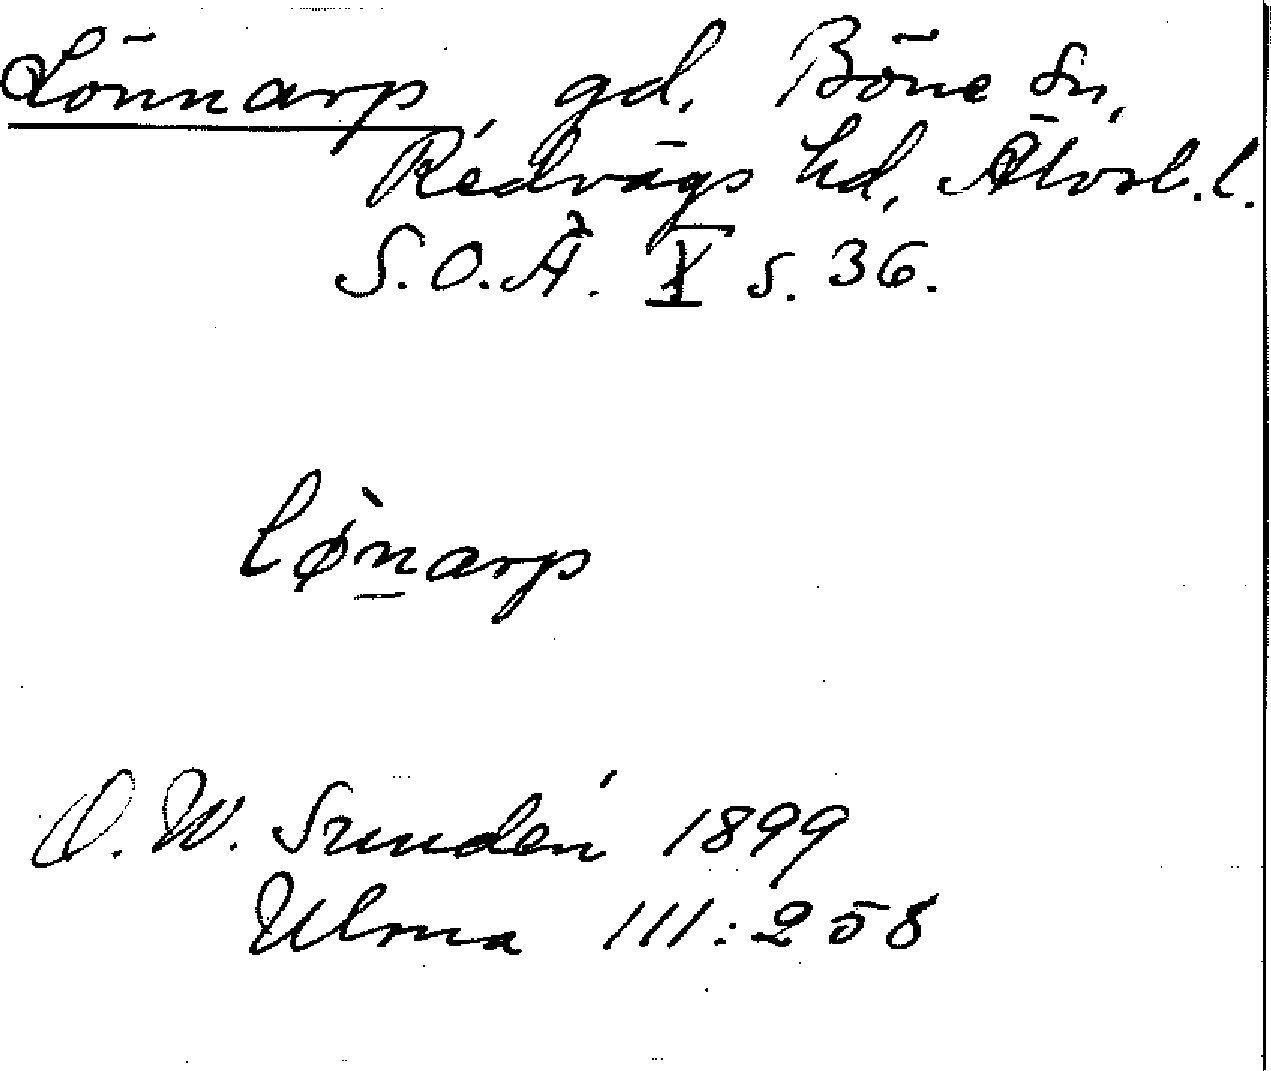 Lönnarp, gd, Böne sn,
Redvägs hd, Älvsb.l.
S.O.Ä. X s. 36.
lø̀n̲arp
D. W. Sundén 1899
Ulma 111:258